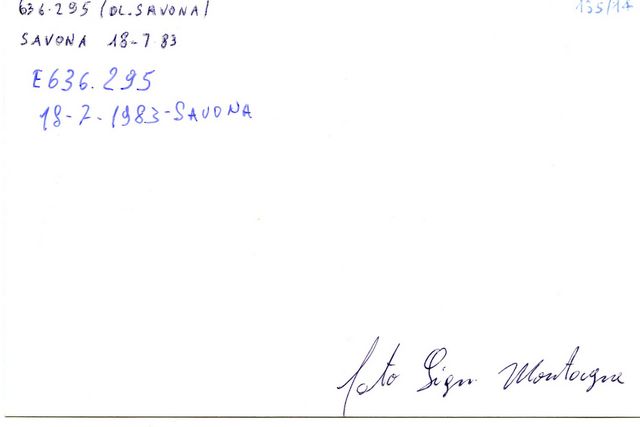 636.295 (DL.SAVONA)
135/17
SAVONA 18-7-83
E636.295
18-7-1983-SAVONA
foto Sign. Montagna